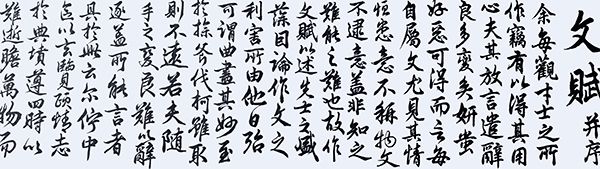 文賦并序
余每觀才士之所
作竊有以得其用
心夫其放言遣辭
良多變矣妍蚩
好惡可得而言每
自屬文尤見其情
恒患意不稱物文
不逮意蓋非知之
難能之難也故作
文賦以述先士之盛
藻因論作文之
利害所由他日殆
可謂曲盡其妙至
於操斧伐柯雖取
則不遠若夫隨
手之變良難以辭
逐蓋所能言者
具於此云尔佇中
區以玄覽頤情志
於典墳遵四時以
歎逝瞻萬物而